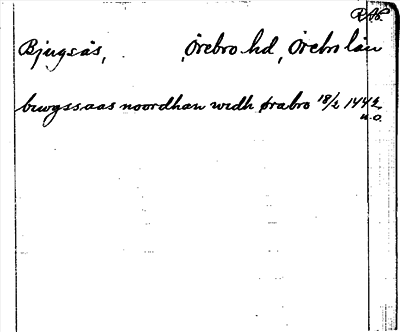 RAP
Bjugsås, Örebro hd, Örebro län
biwgssaas noordhan widh ørabro 18/2 1442
u.o.